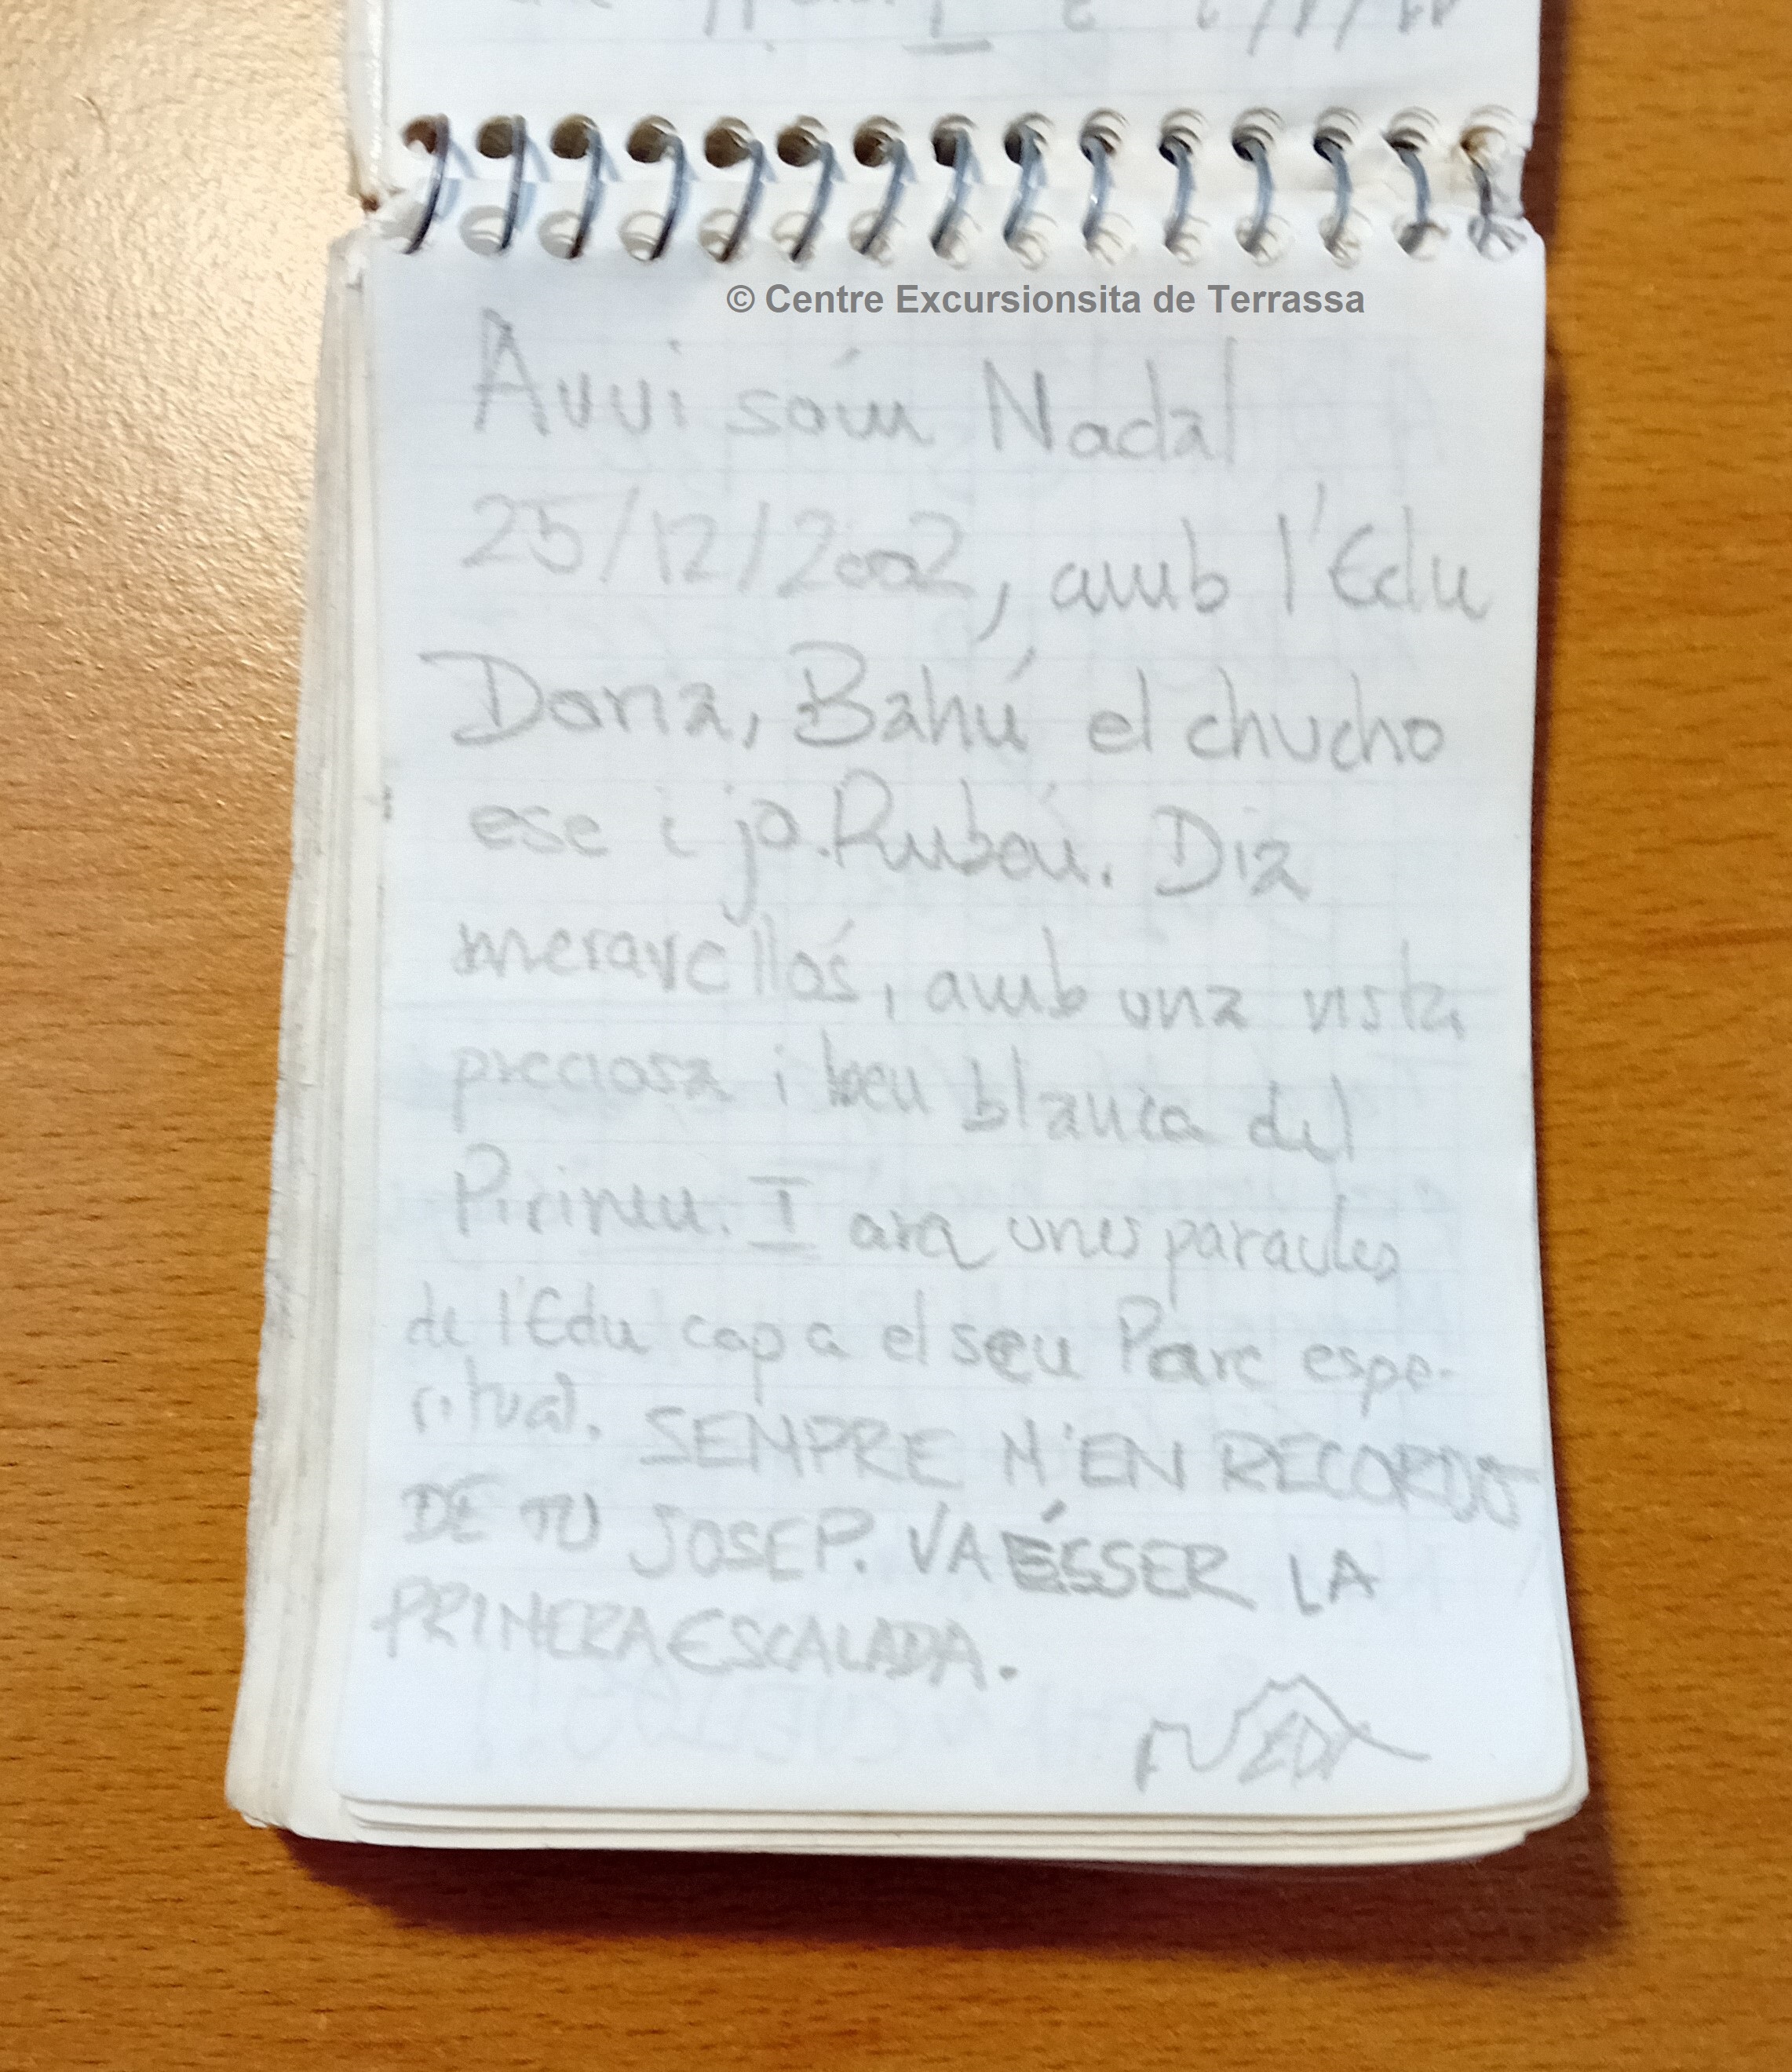 © Centre Excursionsita de Terrassa
Avui sóm Nadal
25/12/2002, amb l'Edu
Doria, Bahú el chucho
ese i jo. Rubén. Dia
meravellós, amb una vista
preciosa i ben blanca del
Pirineu. I ara unes paraules
de l'Edu cap a el seu Parc espe-
ritual. SEMPRE M'EN RECORDO
DE TU JOSEP. VA ÉSSER LA
PRIMERA ESCALADA.